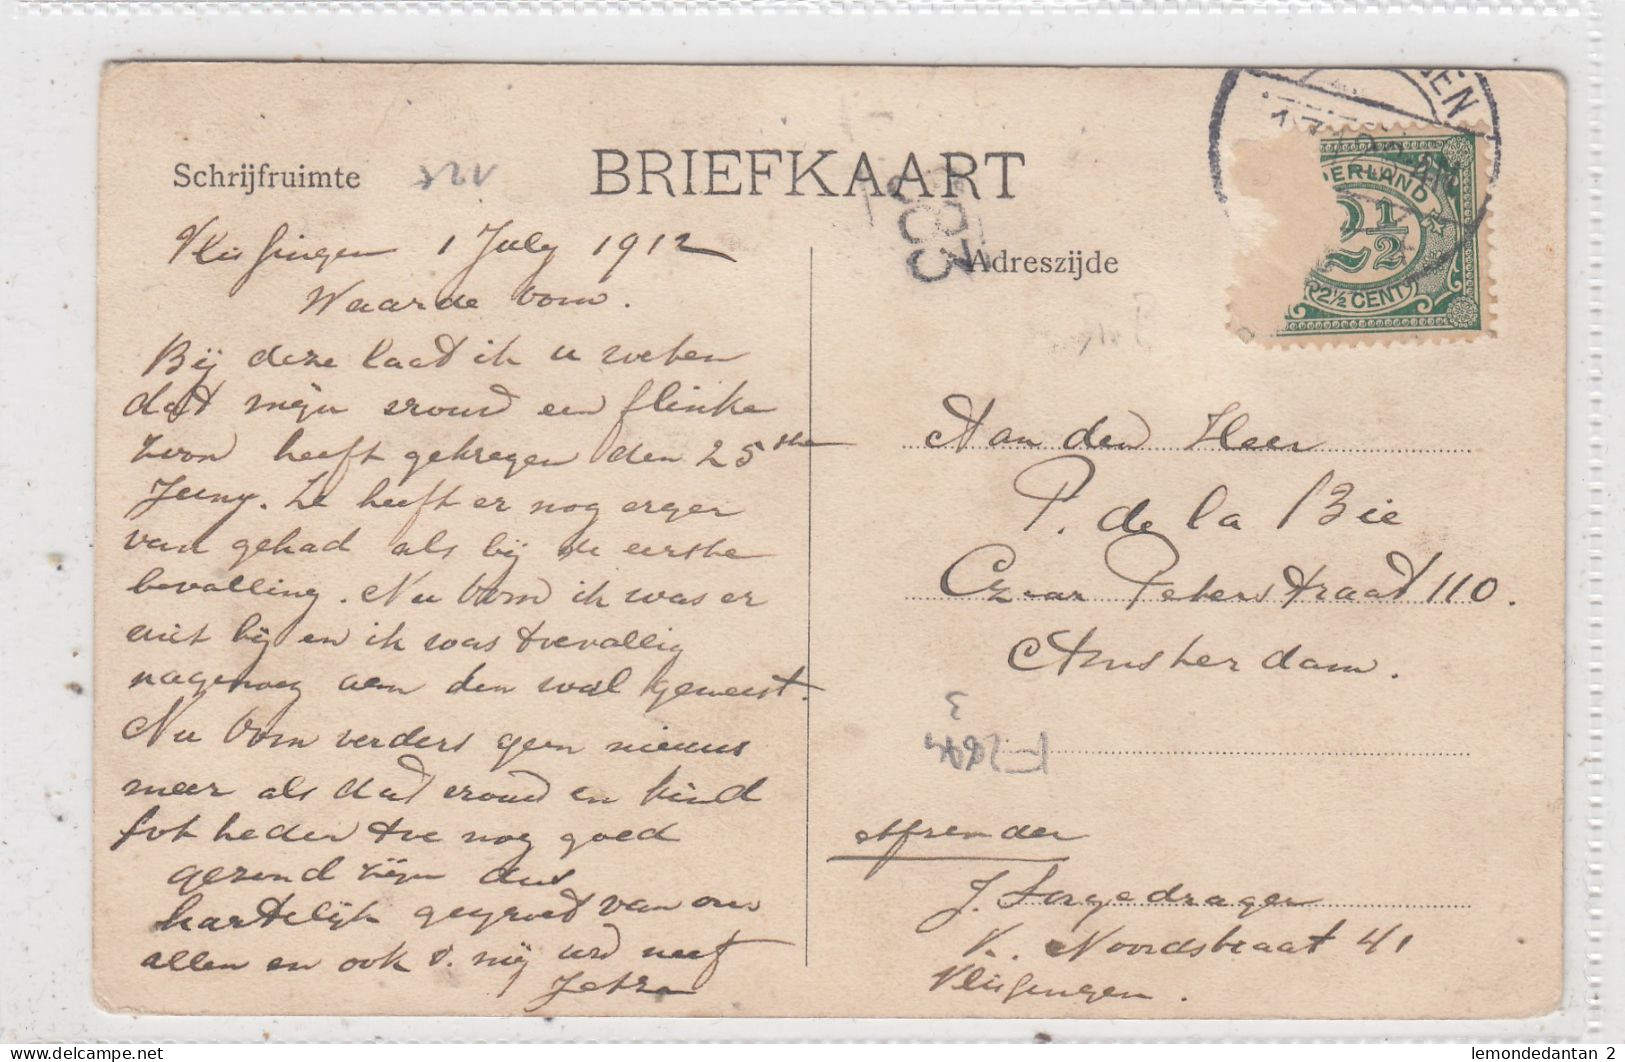 BRIEFKAART
Schrijfruimte
Adreszijde
Vlissingen 1 July 1912
Waarde oom.
Bij deze laat ik u weten
dat mijn vrouw een flinke
zoon heeft gekregen den 25ste
Juny. Ze heeft er nog erger
van gehad als bij de eerste
bevalling. Nu oom ik was er
niet bij en ik was toevallig
nagenoeg aan den wal geweest.
Nu oom verders geen nieuws
meer als dat vrouw en kind
tot heden toe nog goed
gezond zijn dus
hartelijk gegroet van ons
allen en ook v. mij uw neef
Aan den Heer
P. de la Bie
Czaar Peterstraat 110.
Amsterdam.
Affzender
J. Sorgedrager
K. Noordstraat 41
Vlissingen.
DERLAND
2½
2½ CENT
GEN
3
lemondedantan 2